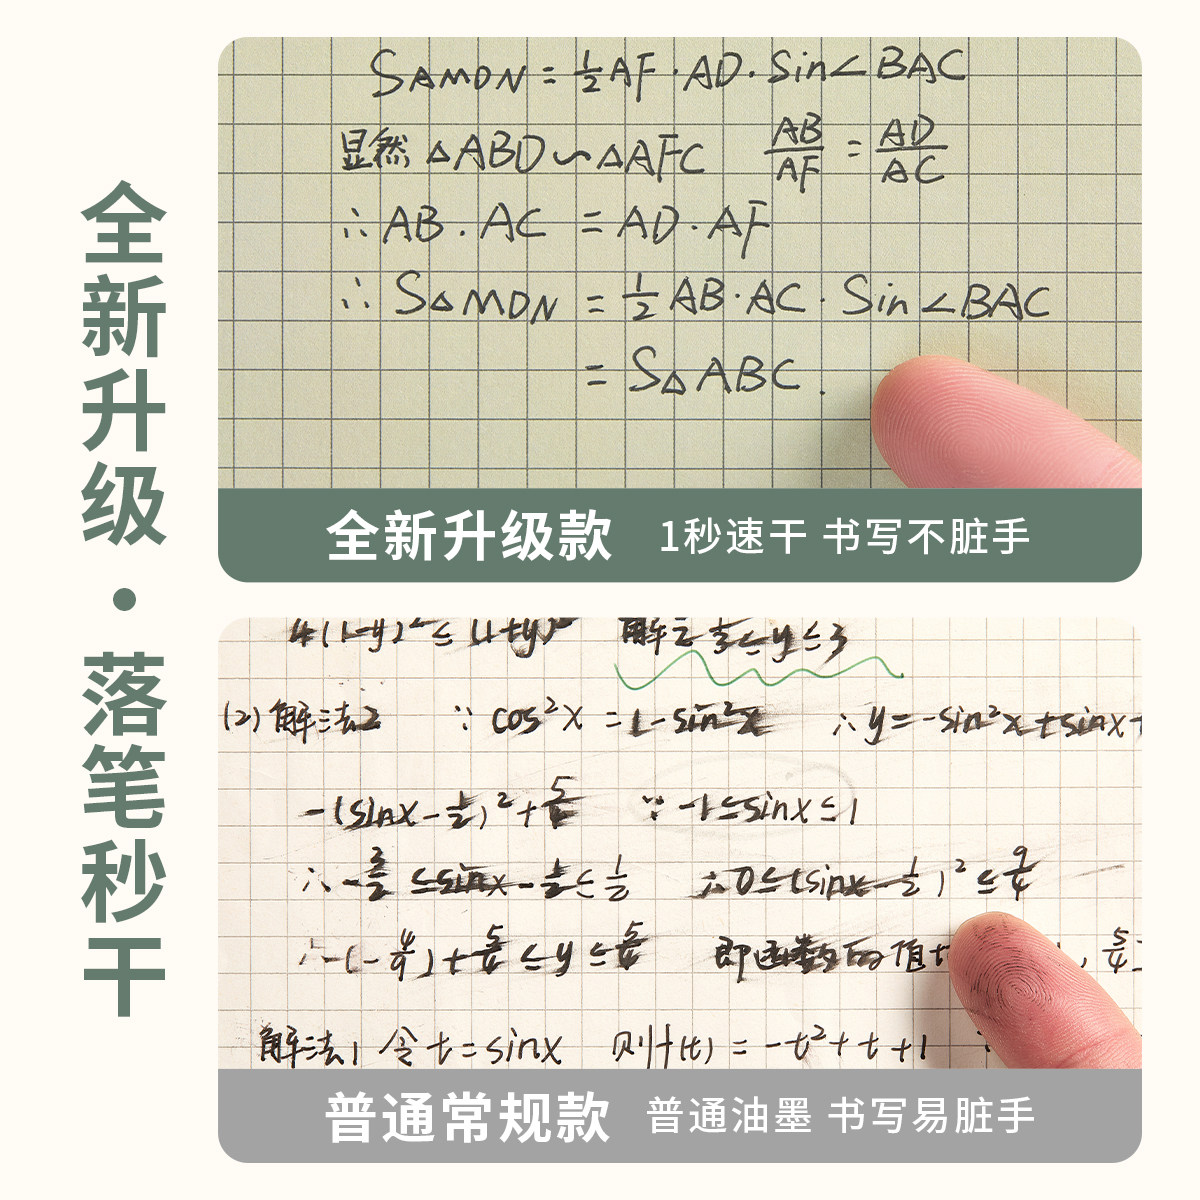 全新升级·落笔秒干
S△MDN = 1/2 AF·AD·Sin∠BAC
显然 △ABD∽△AFC AB/AF = AD/AC
∴ AB·AC = AD·AF
∴ S△MDN = 1/2 AB·AC·Sin∠BAC
= S△ABC.
全新升级款 1秒速干 书写不脏手
4(1-y)²≤(1+y)² 解之 1/3≤y≤3
(2)解法2 ∵ cos²x = 1-sin²x ∴ y=-sin²x+sinx+
-(sinx-1/2)²+5/4 ∵ -1≤sinx≤1
∴ -3/2≤sinx-1/2≤1/2 ∴ 0≤(sinx-1/2)²≤9/4
∴ -(-4/9)+5/4≤y≤5/4 即函数的值 , 5/4]
解法1 令t=sinx 则f(t)=-t²+t+1
普通常规款 普通油墨 书写易脏手